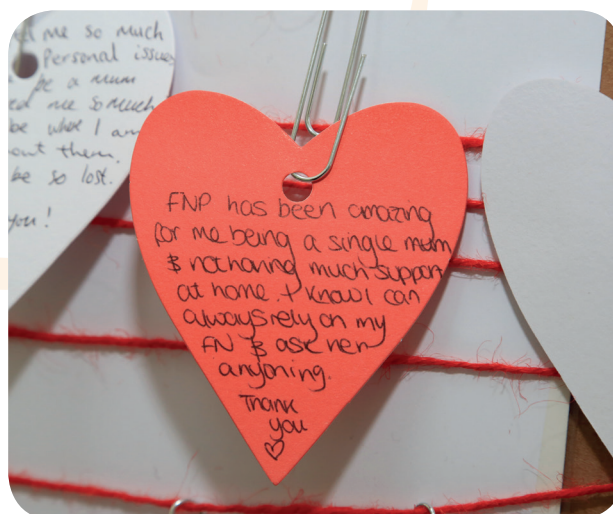 me so much
Personal issues
be a mum
me so much
be what I am
out them.
be so lost.
you!
FNP has been amazing
for me being a single mum
& not having much support
at home. I know I can
always rely on my
FN & ask her
anything.
Thank
you
♡